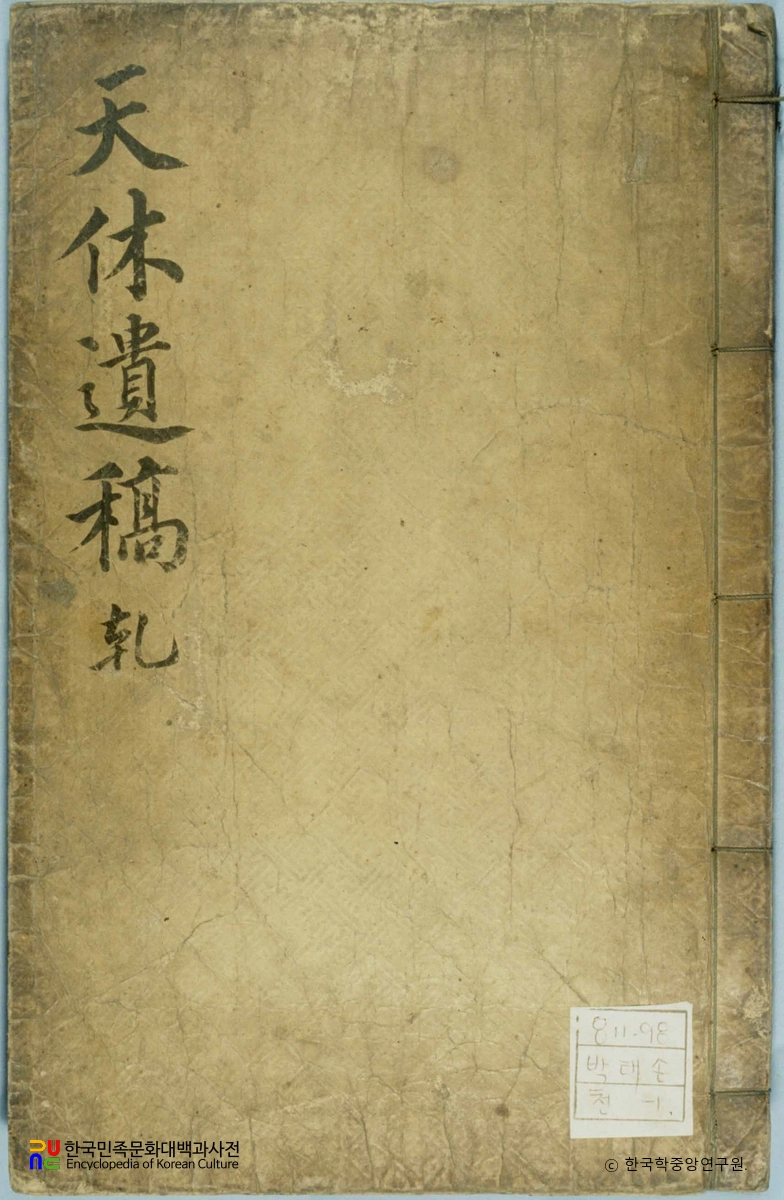 天休遺稿 乾
811.98
박태손
천 -1.
한국민족문화대백과사전
Encyclopedia of Korean Culture
ⓒ 한국학중앙연구원.